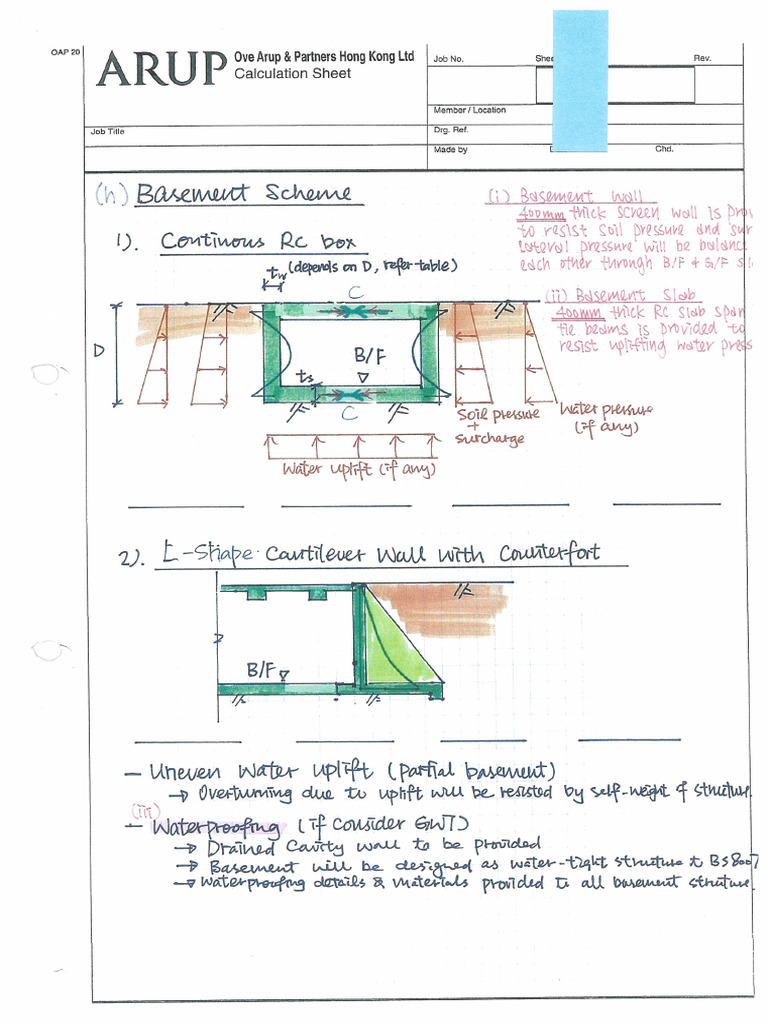 OAP 20
ARUP
Ove Arup & Partners Hong Kong Ltd
Calculation Sheet
Job No.
Rev.
Member / Location
Job Title
Drg. Ref.
Made by
Chd.
(h) Basement Scheme
(i) Basement wall
400mm thick screen wall is
to resist soil pressure and
lateral pressure will be
each other through B/F & G/F
1). Continous RC box
tw (depends on D, refer table)
C
(ii) Basement Slab
400mm thick RC slab
tie beams is provided to
resist uplifting water
D
B/F
ts
C
Soil pressure
+
surcharge
Water pressure
(if any)
Water uplift (if any)
2). L-Shape Cantilever Wall with Counterfort
B/F
- Uneven Water Uplift (partial basement)
→ Overturning due to uplift will be resisted by self-weight of structure.
(iii)
- Waterproofing (if consider GWT)
→ Drained Cavity wall to be provided
→ Basement will be designed as water-tight structure to BS8007
→ Waterproofing details & materials provided to all basement structure.